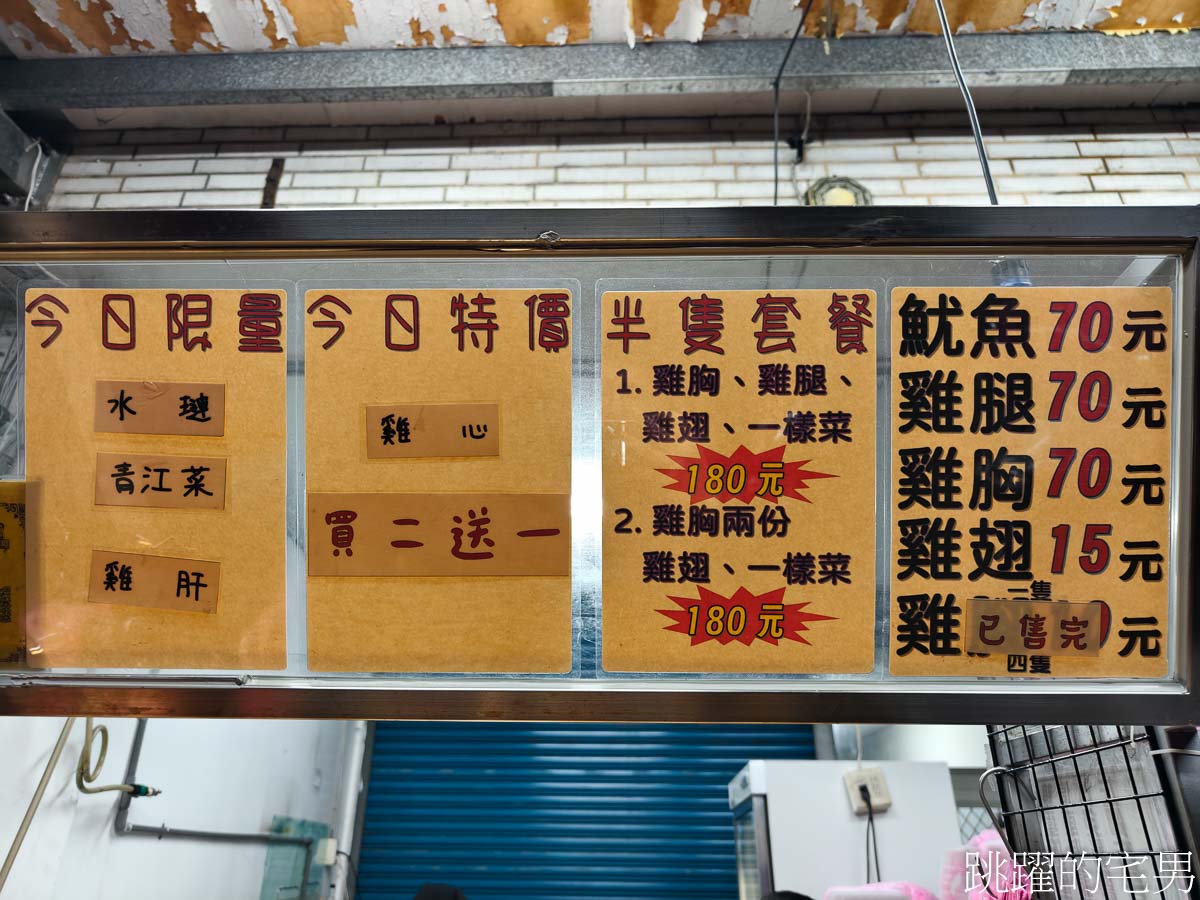 今日限量
水璉
青江菜
雞肝
今日特價
雞心
買二送一
半隻套餐
1. 雞胸、雞腿、
雞翅、一樣菜
180元
2. 雞胸兩份
雞翅、一樣菜
180元
魷魚70元
雞腿70元
雞胸70元
雞翅15元
一隻
雞 已售完 元
四隻
跳躍的宅男